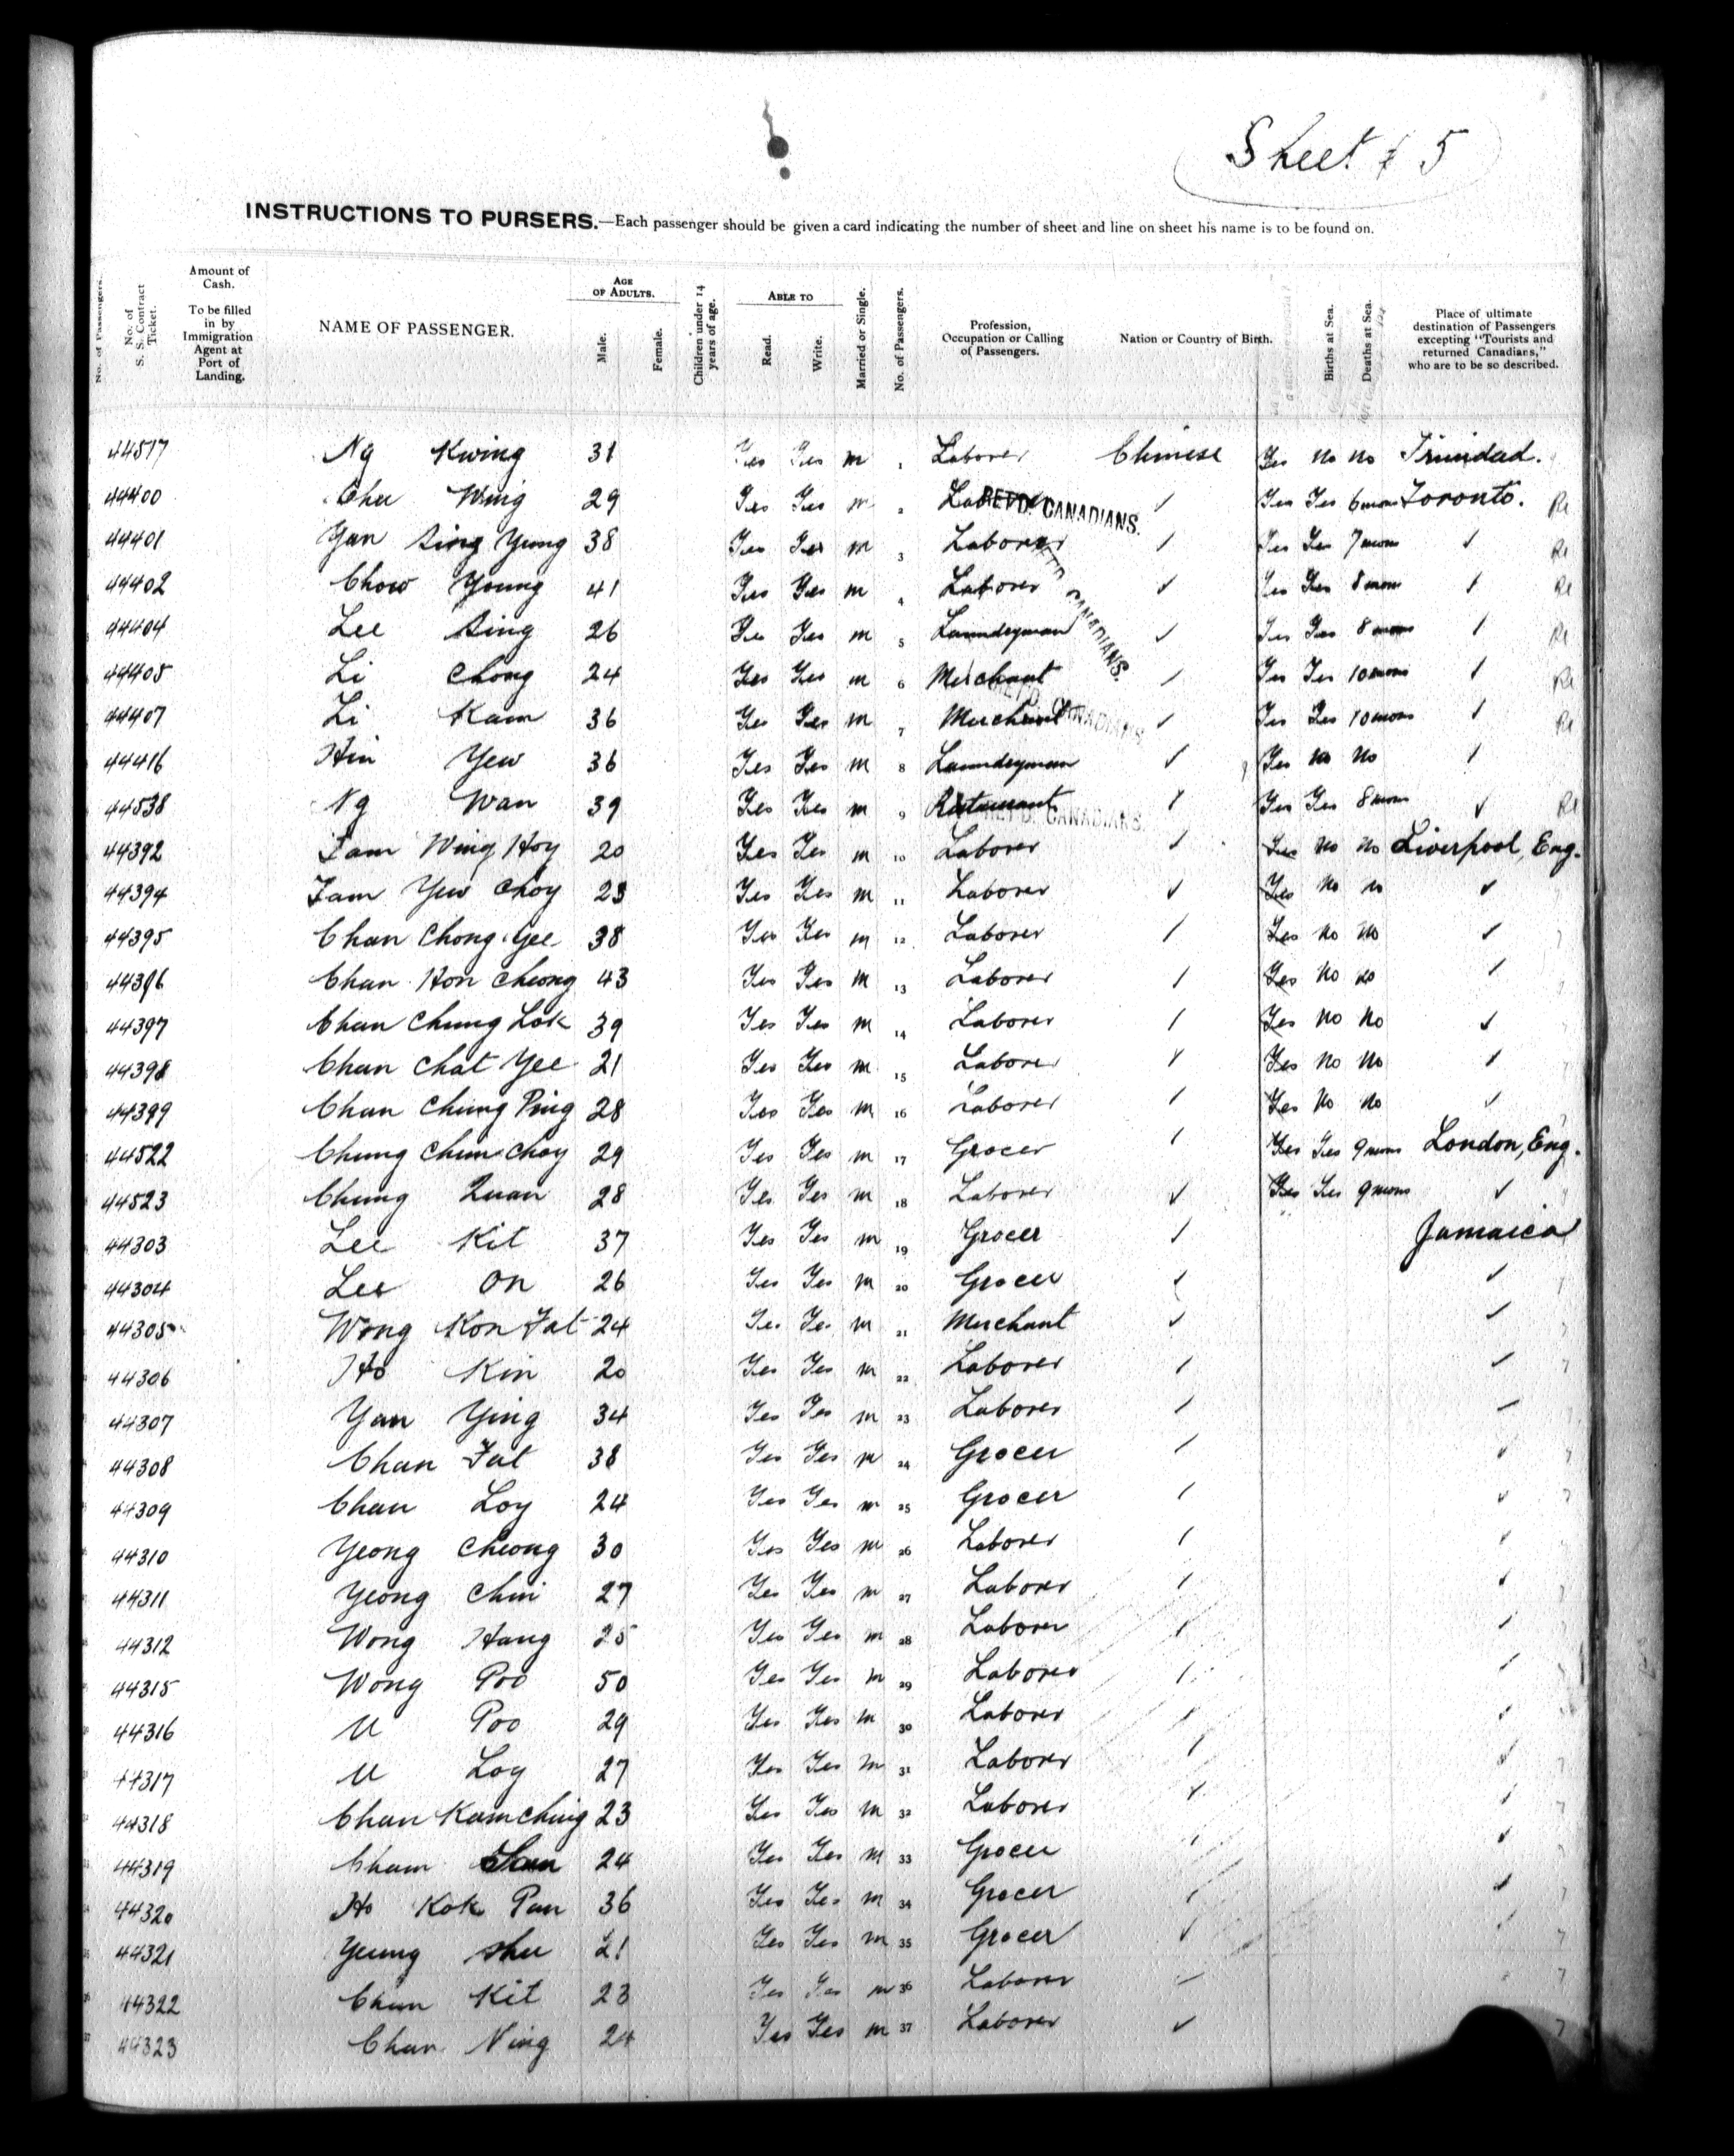 Sheet # 5
INSTRUCTIONS TO PURSERS.—Each passenger should be given a card indicating the number of sheet and line on sheet his name is to be found on.
No. of Passengers.
No. of S. S. Contract Ticket.
Amount of Cash. To be filled in by Immigration Agent at Port of Landing.
NAME OF PASSENGER.
AGE OF ADULTS.
Male.
Female.
Children under 14 years of age.
ABLE TO
Read.
Write.
Married or Single.
No. of Passengers.
Profession, Occupation or Calling of Passengers.
Nation or Country of Birth.
Births at Sea.
Deaths at Sea.
Place of ultimate destination of Passengers excepting "Tourists and returned Canadians," who are to be so described.
44517 Ng Kwing 31 Yes Yes m 1 Laborer Chinese Yes no no Trinidad.
44400 Chu Wing 29 Yes Yes m 2 Laborer RET'D. CANADIANS. ✓ Yes Yes 6 mons Toronto. Re
44401 Yan Sing Yung 38 Yes Yes m 3 Laborer ✓ Yes Yes 7 mons ✓ Re
44402 Chow Young 41 Yes Yes m 4 Laborer RET'D CANADIANS. ✓ Yes Yes 8 mons ✓ Re
44404 Lee Sing 26 Yes Yes m 5 Laundryman ✓ Yes Yes 8 mons ✓ Re
44405 Li Chong 24 Yes Yes m 6 Merchant ✓ Yes Yes 10 mons ✓ Re
44407 Li Kam 36 Yes Yes m 7 Merchant RET'D. CANADIANS. ✓ Yes Yes 10 mons ✓ Re
44416 Hin Yew 36 Yes Yes m 8 Laundryman ✓ Yes no no ✓
44538 Ng Wan 39 Yes Yes m 9 Restaurant RET'D. CANADIANS. ✓ Yes Yes 8 mons ✓ Re
44392 Fam Wing Hoy 20 Yes Yes m 10 Laborer ✓ Yes no no Liverpool, Eng.
44394 Fam Yew Choy 23 Yes Yes m 11 Laborer ✓ Yes no no ✓
44395 Chan Chong Yee 38 Yes Yes m 12 Laborer ✓ Yes no no ✓
44396 Chan Hon Cheong 43 Yes Yes m 13 Laborer ✓ Yes no no ✓
44397 Chan Chung Lok 39 Yes Yes m 14 Laborer ✓ Yes no no ✓
44398 Chan Chat Yee 21 Yes Yes m 15 Laborer ✓ Yes no no ✓
44399 Chan Chung Ping 28 Yes Yes m 16 Laborer ✓ Yes no no ✓
44522 Chung Chun Choy 29 Yes Yes m 17 Grocer ✓ Yes Yes 9 mons London, Eng.
44523 Chung Quan 28 Yes Yes m 18 Laborer ✓ Yes Yes 9 mons ✓
44303 Lee Kit 37 Yes Yes m 19 Grocer ✓ Jamaica
44304 Lee On 26 Yes Yes m 20 Grocer ✓ ✓
44305 Wong Kon Fat 24 Yes Yes m 21 Merchant ✓ ✓
44306 Ho Kin 20 Yes Yes m 22 Laborer ✓ ✓
44307 Yan Ying 34 Yes Yes m 23 Laborer ✓ ✓
44308 Chan Fat 38 Yes Yes m 24 Grocer ✓ ✓
44309 Chan Loy 24 Yes Yes m 25 Grocer ✓ ✓
44310 Yeong Cheong 30 Yes Yes m 26 Laborer ✓ ✓
44311 Yeong Chui 27 Yes Yes m 27 Laborer ✓ ✓
44312 Wong Hang 25 Yes Yes m 28 Laborer ✓ ✓
44315 Wong Poo 50 Yes Yes m 29 Laborer ✓ ✓
44316 U Poo 29 Yes Yes m 30 Laborer ✓ ✓
44317 U Loy 27 Yes Yes m 31 Laborer ✓ ✓
44318 Chan Kam Ching 23 Yes Yes m 32 Laborer ✓ ✓
44319 Cham 24 Yes Yes m 33 Grocer ✓ ✓
44320 Ho Kok Pan 36 Yes Yes m 34 Grocer ✓ ✓
44321 Yeung Shu 21 Yes Yes m 35 Grocer ✓ ✓
44322 Chun Kit 23 Yes Yes m 36 Laborer ✓
44323 Chan Ning 24 Yes Yes m 37 Laborer ✓